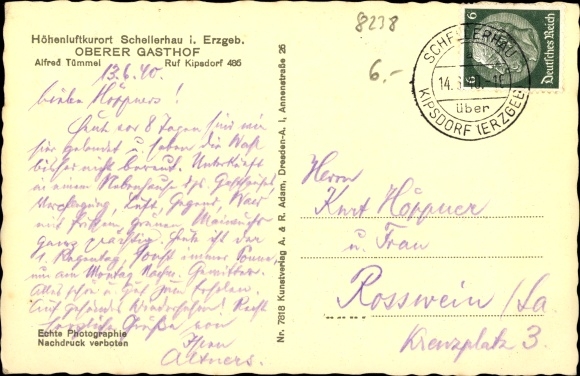 Höhenluftkurort Schellerhau i. Erzgeb.
OBERER GASTHOF
Alfred Tümmel Ruf Kipsdorf 486
13.6.40.
Lieben Höppners!
Heut vor 8 Tagen sind wir
hier gelandet u. haben die Wahl
bisher nicht bereut. Unterkunft
in einem Nebenhause des Gasthofes,
Verpflegung, Luft, Gegend, Wald
mit frischem grünen Maiwuchs
ganz prächtig. Heute ist der
1. Regentag, sonst immer Sonne,
nur am Montag Nachm. Gewitter.
Alles schön u. gut zum Erholen.
Auf gesundes Wiedersehen! Recht
herzliche Grüße von
Ihren
Altners.
Echte Photographie
Nachdruck verboten
Nr. 7618 Kunstverlag A. & R. Adam, Dresden-A. I, Annenstraße 26
8238
6.-
SCHELLERHAU
14.6.40
über
KIPSDORF (ERZGEB)
Deutsches Reich
6
6
Herrn
Kurt Höppner
u. Frau
Rosswein /Sa
Kreuzplatz 3.